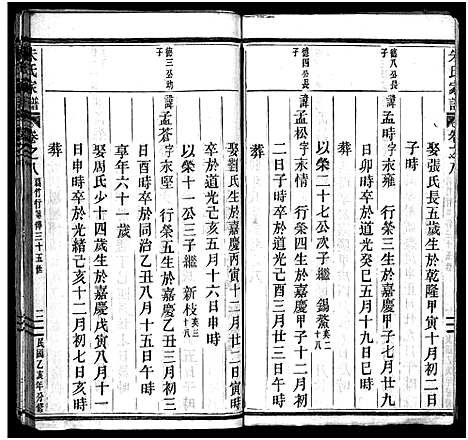 朱氏家譜 卷之八
娶張氏長五歲生於乾隆甲寅十月初二日
子時
葬
德八公長子
諱孟時字永雍 行榮三生於嘉慶甲子七月廿九
日卯時卒於道光癸巳五月十九日巳時
以榮二十七公次子繼 錫鰲英二十八
德四公長子
諱孟松字永情 行榮四生於嘉慶甲子十二月初
二日子時卒於道光己酉三月廿三日午時
葬
娶劉氏生於嘉慶丙寅十二月廿二日寅時
卒於道光己亥五月十六日申時
以榮十一公三子繼 新枝英三十八
德三公幼子
諱孟蒼字永堅 行榮五生於嘉慶乙丑三月初三
日酉時卒於同治乙丑八月十五日午時
享年六十一歲
娶周氏少十四歲生於嘉慶戊寅八月十一
日申時卒於光緒己亥十二月初七日亥時
葬
朱氏家譜 卷之八
民國乙亥年分修